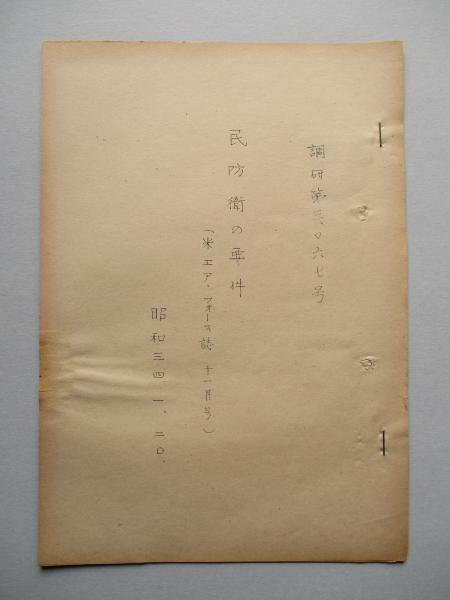 調研第三〇六七号
民防衛の要件
（米エア・フォース誌 十一月号）
昭和三四、一、二〇、